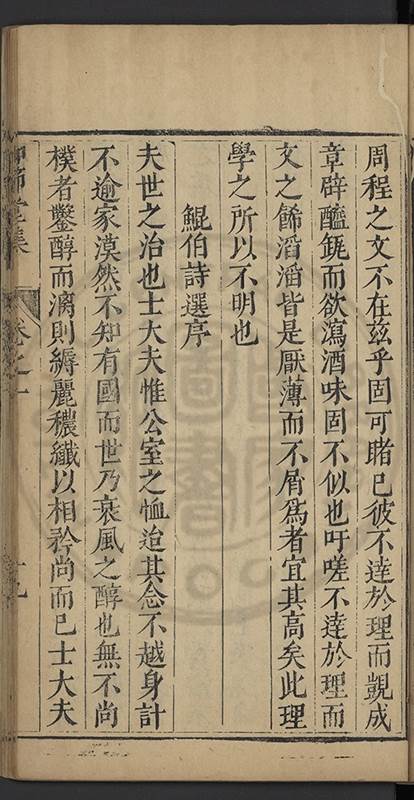 周程之文不在茲乎固可睹已彼不達於理而覬成
章辟醯甀而欲瀉酒味固不似也吁嗟不達於理而
文之餙滔滔皆是厭薄而不屑爲者宜其高矣此理
學之所以不明也
鯤伯詩選序
夫世之治也士大夫惟公室之恤迨其念不越身計
不逾家漠然不知有國而世乃衰風之醇也無不尚
樸者鑿醇而漓則縟麗穠纖以相矜尚而已士大夫
節堂集 卷之一 十九